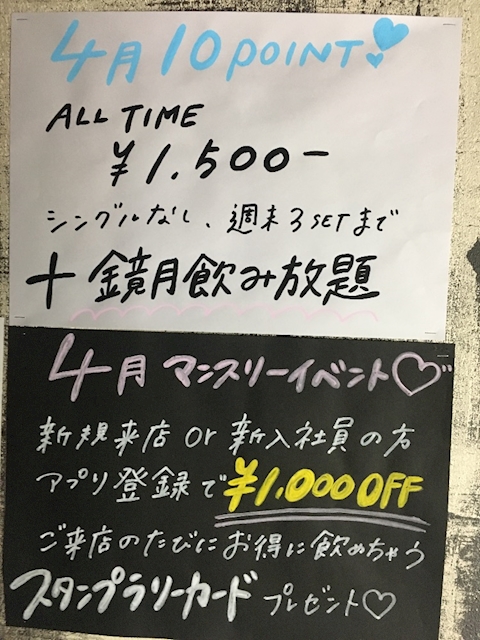 4月10POINT!
ALL TIME
¥1.500-
シングルなし、週末3SETまで
+鏡月飲み放題
4月マンスリーイベント♡
新規来店or新入社員の方
アプリ登録で¥1.000OFF
ご来店のたびにお得に飲めちゃう
スタンプラリーカードプレゼント♡